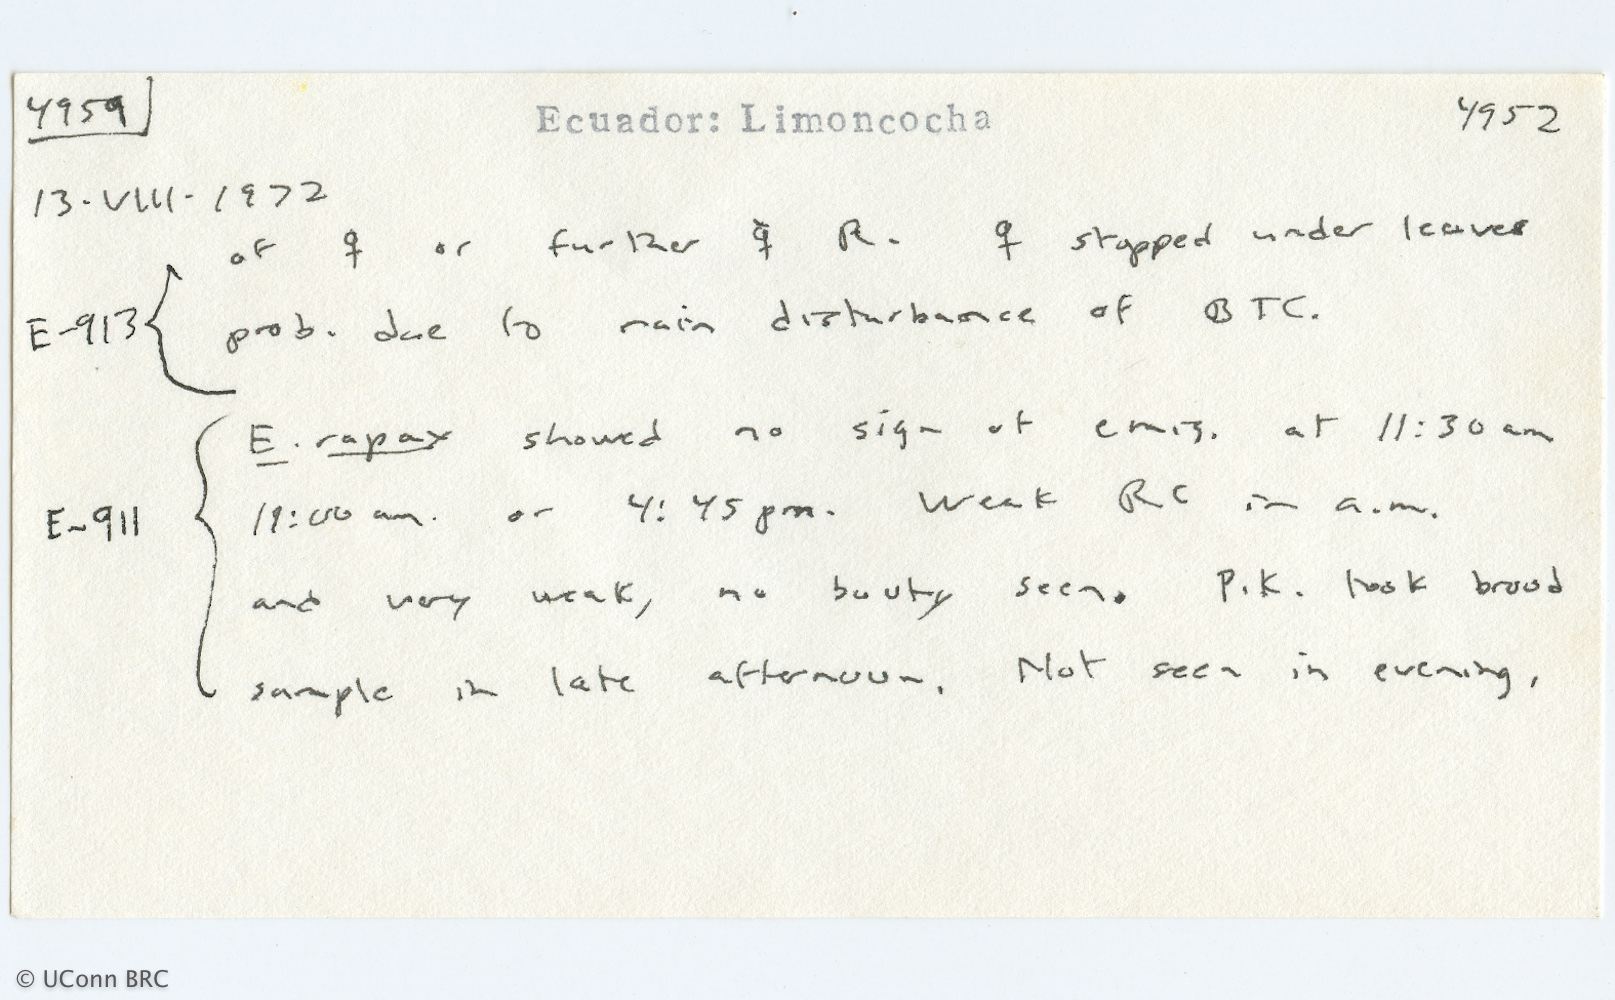 4959 Ecuador: Limoncocha 4952
13-VIII-1972
of ♀ or further ♀ R. ♀ stopped under leaves
E-913 prob. due to main disturbance of BTC.
E. rapax showed no sign of emig. at 11:30 am
E-911 or 4:45 pm. Weak RC in a.m.
and very weak, no booty seen. P.K. took brood
sample in late afternoon. Not seen in evening.
© UConn BRC